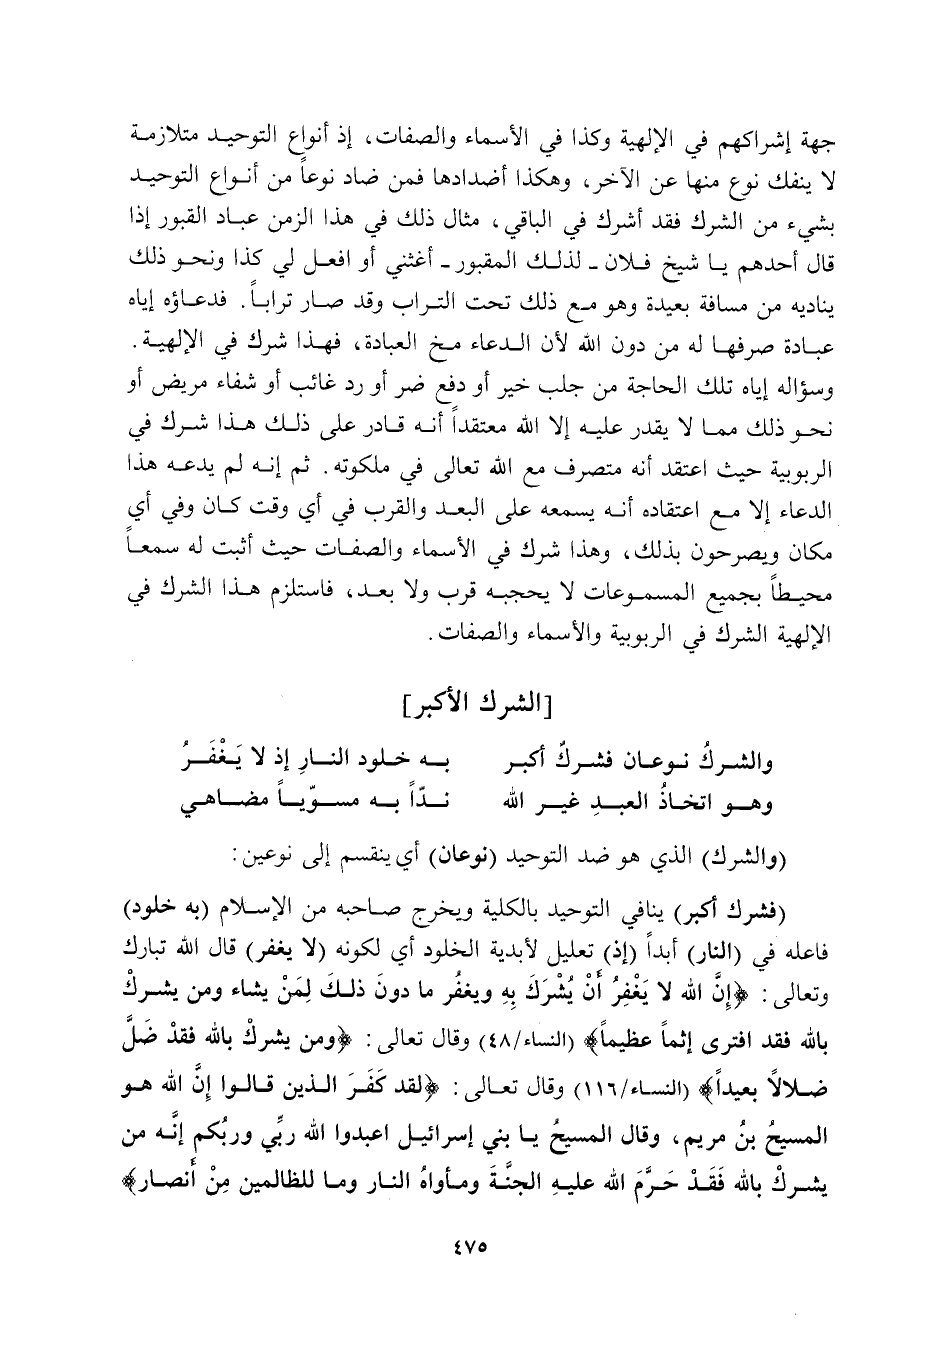 جهة إشراكهم في الإلهية وكذا في الأسماء والصفات، إذ أنواع التوحيد متلازمة
لا ينفك نوع منها عن الآخر، وهكذا أضدادها فمن ضاد نوعاً من أنواع التوحيد
بشيء من الشرك فقد أشرك في الباقي، مثال ذلك في هذا الزمن عباد القبور إذا
قال أحدهم يا شيخ فلان - لذلك المقبور - أغثني أو افعل لي كذا ونحو ذلك
يناديه من مسافة بعيدة وهو مع ذلك تحت التراب وقد صار تراباً. فدعاؤه إياه
عبادة صرفها له من دون الله لأن الدعاء مخ العبادة، فهذا شرك في الإلهية.
وسؤاله إياه تلك الحاجة من جلب خير أو دفع ضر أو رد غائب أو شفاء مريض أو
نحو ذلك مما لا يقدر عليه إلا الله معتقداً أنه قادر على ذلك هذا شرك في
الربوبية حيث اعتقد أنه متصرف مع الله تعالى في ملكوته. ثم إنه لم يدعه هذا
الدعاء إلا مع اعتقاده أنه يسمعه على البعد والقرب في أي وقت كان وفي أي
مكان ويصرحون بذلك، وهذا شرك في الأسماء والصفات حيث أثبت له سمعاً
محيطاً بجميع المسموعات لا يحجبه قرب ولا بعد، فاستلزم هذا الشرك في
الإلهية الشرك في الربوبية والأسماء والصفات.
[الشرك الأكبر]
والشركُ نوعان فشركٌ أكبر به خلود النارِ إذ لا يَغْفَرُ
وهو اتخاذُ العبدِ غير الله ندّاً به مسوّياً مضاهي
(والشرك) الذي هو ضد التوحيد (نوعان) أي ينقسم إلى نوعين:
(فشرك أكبر) ينافي التوحيد بالكلية ويخرج صاحبه من الإسلام (به خلود)
فاعله في (النار) أبداً (إذ) تعليل لأبدية الخلود أي لكونه (لا يغفر) قال الله تبارك
وتعالى: ﴿إنَّ الله لا يَغْفِرُ أَنْ يُشْرَكَ بِهِ ويغفُر ما دونَ ذلكَ لِمَنْ يشاء ومن يشركْ
بالله فقد افترى إثماً عظيماً﴾ (النساء/٤٨) وقال تعالى: ﴿ومن يشركْ بالله فقدْ ضَلَّ
ضلالاً بعيداً﴾ (النساء/١١٦) وقال تعالى: ﴿لقد كَفَرَ الذين قالوا إنَّ الله هو
المسيحُ بنُ مريم، وقال المسيحُ يا بني إسرائيل اعبدوا الله ربِّي وربُكم إنَّه من
يشركْ بالله فَقَدْ حَرَّمَ الله عليهِ الجنَّةَ ومأواهُ النار وما للظالمين مِنْ أَنصار﴾
٤٧٥